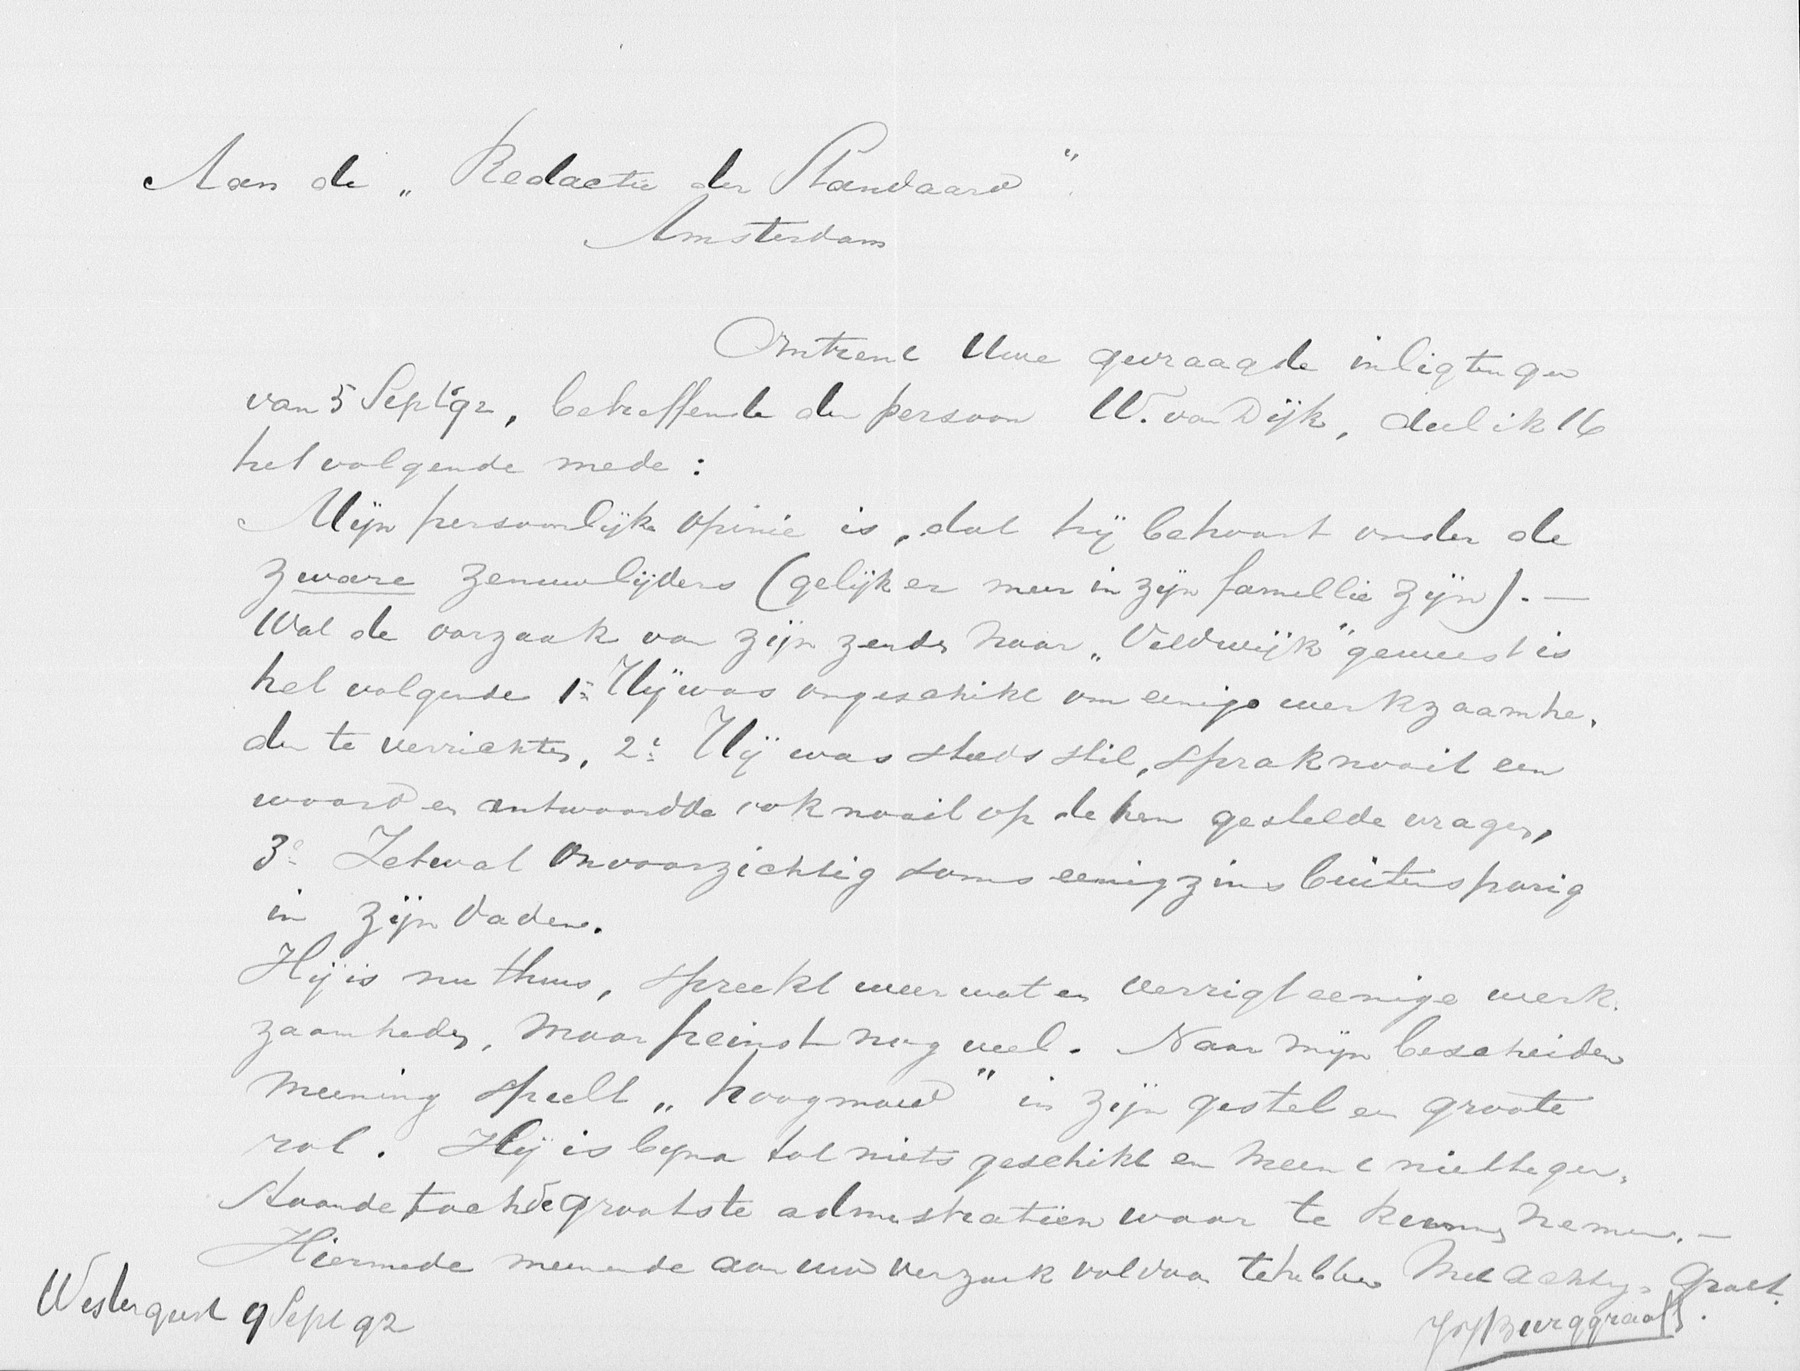 Aan de „Redactie der Standaard"
Amsterdam
Omtrent Uwe gevraagde inligtingen
van 5 Sept 92, betreffende den persoon W. van Dijk, deel ik U
het volgende mede:
Mijn persoonlijke opinie is, dat hij behoort onder de
zware zenuwlijders (gelijk er meer in zijn famellie zijn). —
Wat de oorzaak van zijn zenden naar „Veldwijk" geweest is
het volgende 1e Hij was ongeschikt om eenige werkzaamhe-
den te verrichten, 2e Hij was steeds stil, sprak nooit een
woord en antwoordde ook nooit op de hem gestelde vragen,
3e Ietwat onvoorzichtig soms eenigzins buitensporig
in zijn daden.
Hij is nu thuis, spreekt weer wat en verrigt eenige werk-
zaamheden, maar peinst nog veel. Naar mijn bescheiden
meening speelt „hoogmoed" in zijn gestel en groote
rol. Hij is byna tot niets geschikt en meent niettegen-
staande toch de grootste admistratiën waar te kunnen nemen. —
Hiermede meenende aan uw verzoek voldaan te hebben Met achting Groet.
Westergeest 9 Sept 92
Burggraaff.